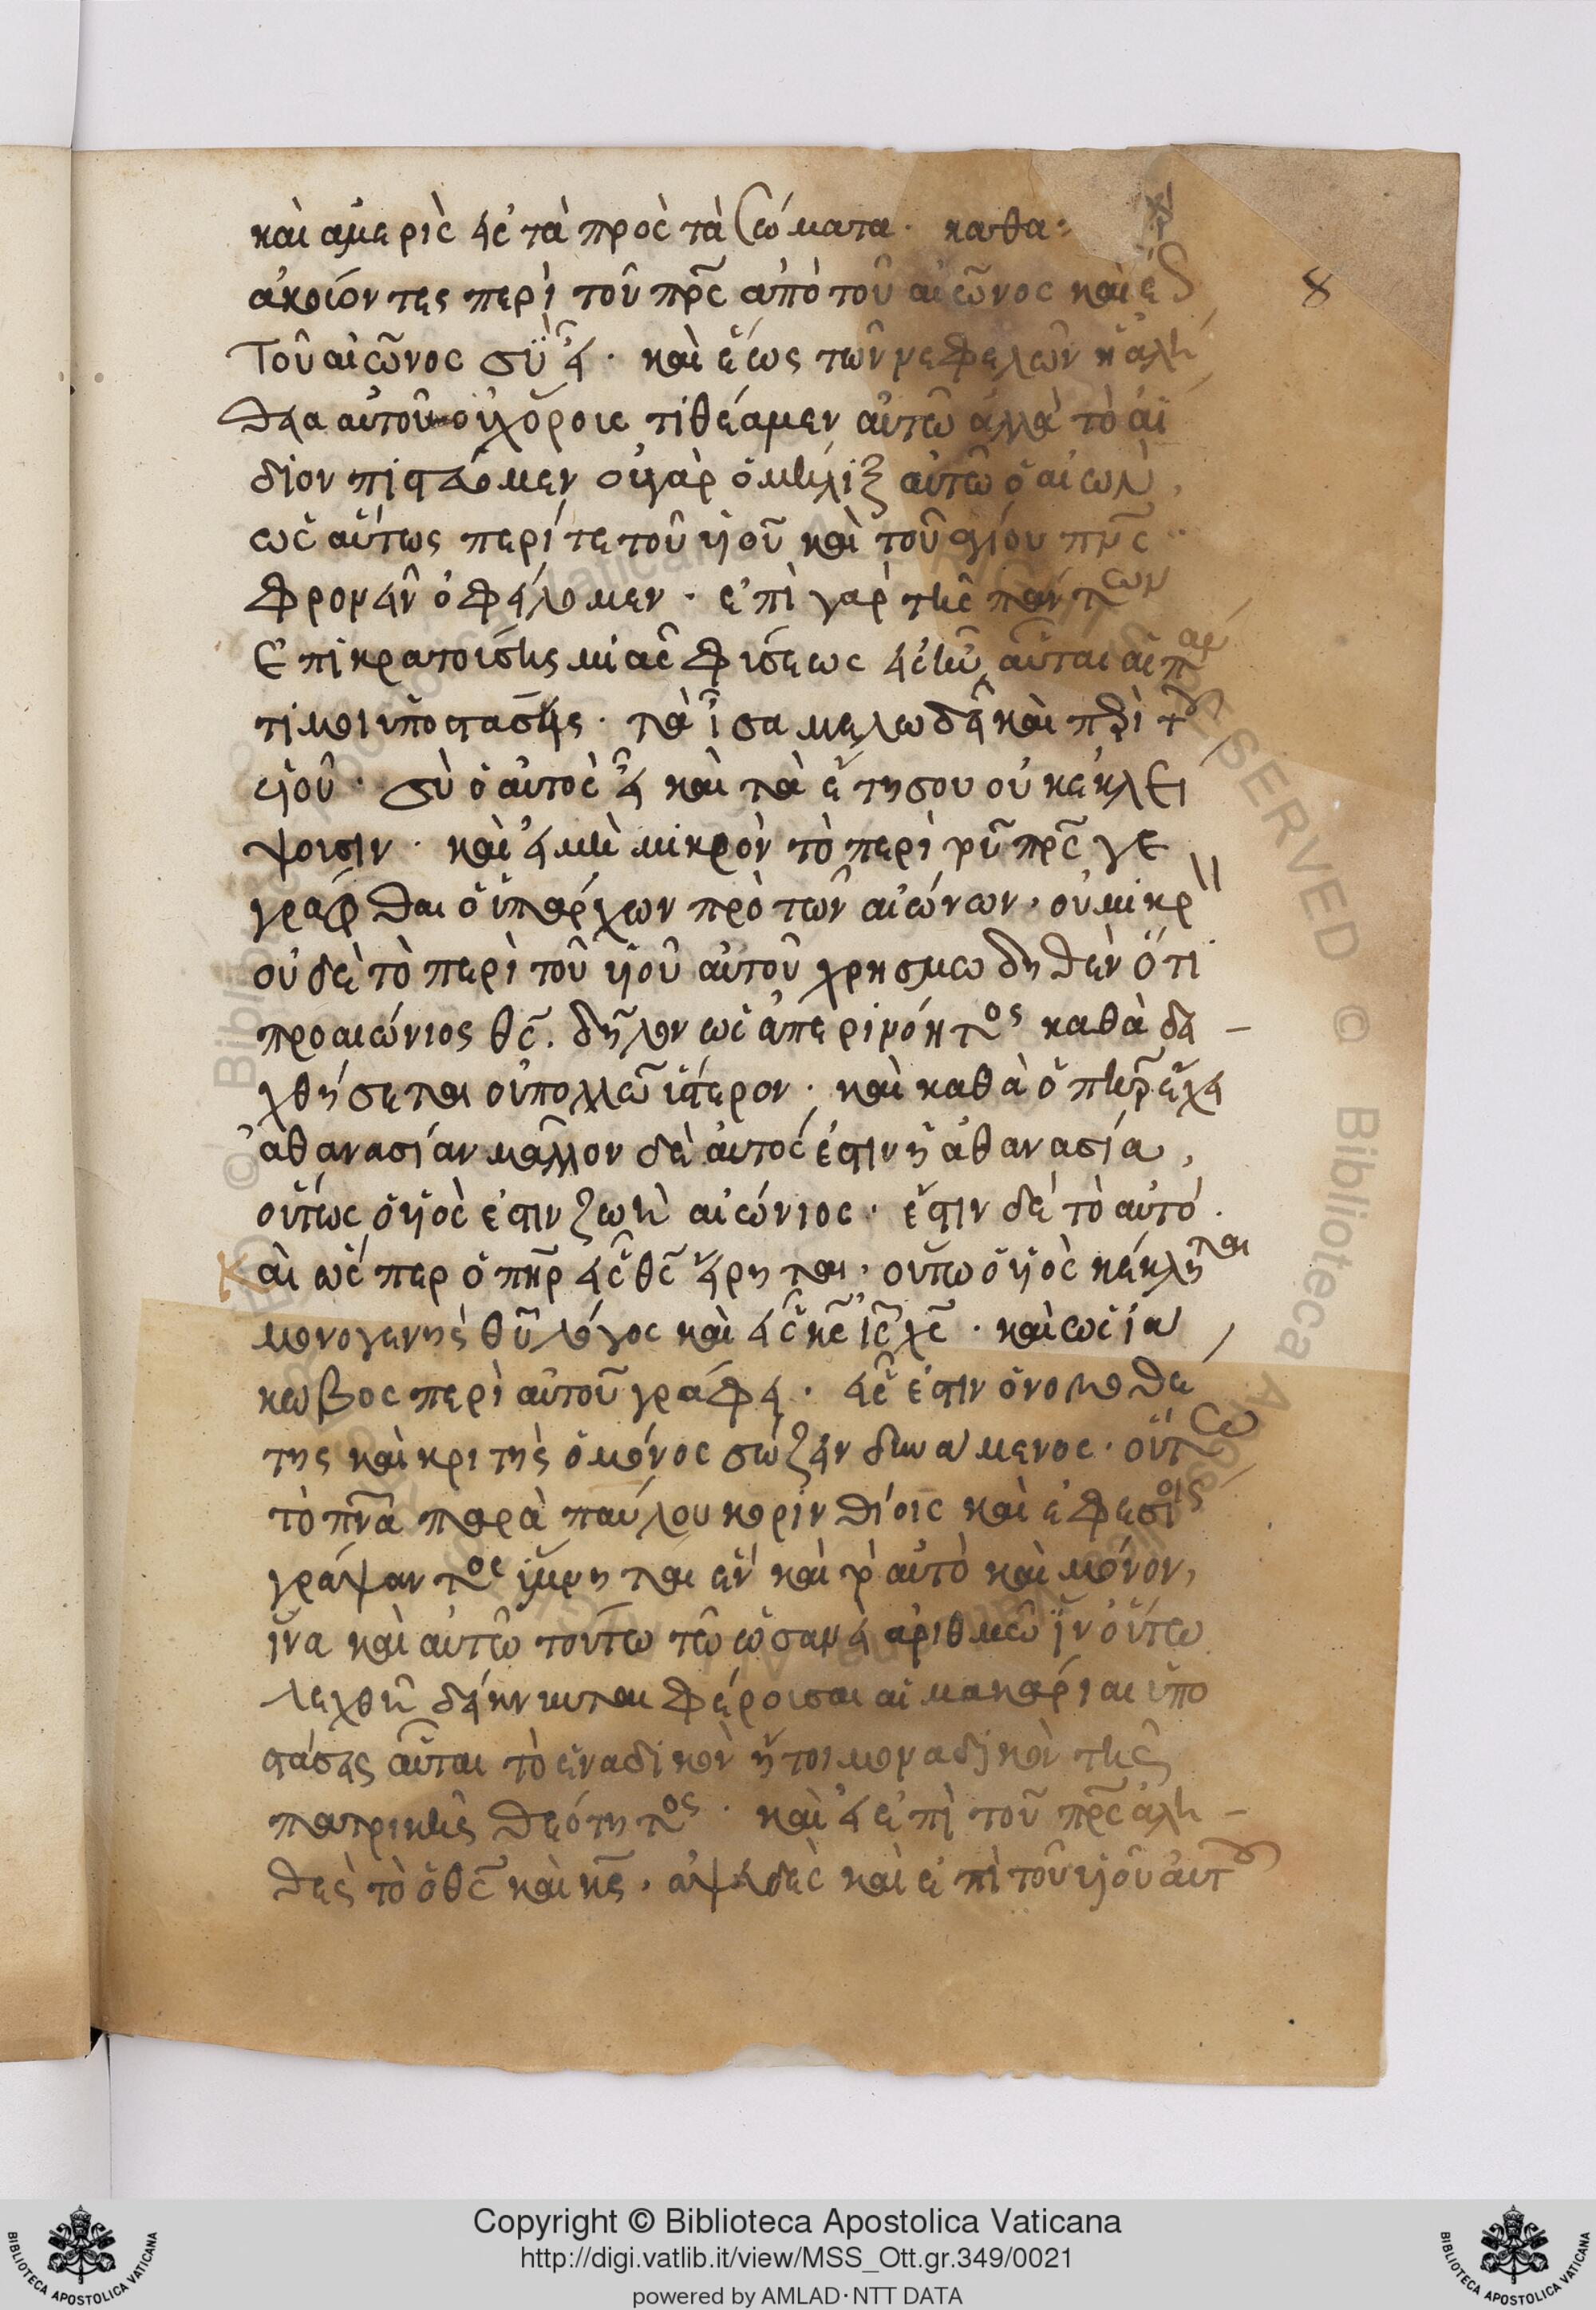 καὶ ἀμερὶς εἰς τὰ πρὸς τὰ σώματα· καθα
ἀκούοντες περὶ τοῦ πρ̅ς ἀπὸ τοῦ αἰῶνος καὶ ἕως
τοῦ αἰῶνος σὺ εἶ· καὶ ἕως τῶν νεφελῶν ἡ ἀλή
θεια αὐτοῦ οὐχ ὅροις τιθέαμεν αὐτῶ ἀλλὰ τὸ ἀΐ
διον πιστεύομεν οὐ γὰρ ὁμῆλιξ αὐτῶ ὁ αἰὼν,
ὡς αὕτως περί τε τοῦ υἱοῦ καὶ τοῦ ἁγίου πν̅ς
φρονεῖν ὀφείλομεν· ἐπὶ γὰρ τῆς πάντων
ἐπικρατούσης μιᾶς φύσεως εἰσὶν αὗται αἱ
τιμοι ὑποστάσεις· τὰ ἶσα μελωδεῖ καὶ περὶ τοῦ
υἱοῦ· σὺ ὁ αὐτὸς εἶ καὶ τὰ ἔτη σου οὐκ ἐκλεί
ψουσιν· καὶ εἰ μὴ μικρὸν τὸ περὶ τοῦ πρ̅ς γε
γράφθαι ὁ ὑπάρχων πρὸ τῶν αἰώνων, οὐ μικρὸν
οὐδὲ τὸ περὶ τοῦ υἱοῦ αὐτοῦ χρησμωδηθὲν ὅτι
προαιώνιος θ̅ς. δῆλον ὡς ἀπερινόητος καθὰ δει
χθήσεται οὐ πολλῶ ὕστερον· καὶ καθὰ ὁ πη̅ρ εἶχε
ἀθανασίαν μᾶλλον δὲ αὐτός ἐστιν ἡ ἀθανασία,
οὕτως ὁ υἱὸς ἐστιν ζωὴ αἰώνιος· ἔστιν δὲ τὸ αὐτό.
Καὶ ὥσπερ ὁ πη̅ρ εἷς θ̅ς εἴρηται, οὕτω ὁ υἱὸς κέκληται
μονογενὴς θ̅υ λόγος καὶ εἷς κ̅ς ι̅ς χ̅ς· καὶ ὡς ἰά
κωβος περὶ αὐτοῦ γράφει· εἷς ἐστιν ὁ νομοθέ
της καὶ κριτὴς ὁ μόνος σώζειν δυνάμενος· οὕτω
τὸ πν̅α παρὰ παύλου κορινθίοις καὶ ἐφεσίοις
γράψαντος εἴρηται ἓν καὶ τὸ αὐτὸ καὶ μόνον,
ἵνα καὶ αὐτῶ τούτω τῶ ὡσανεὶ ἀριθμῶ ἵν' οὕτω
λεχθῆ δείκνυνται φέρουσαι αἱ μακάριαι ὑπο
στάσεις αὗται τὸ ἑναδικὸν ἤτοι μοναδικὸν τῆς
πατρικῆς θεότητος· καὶ εἰ ἐπὶ τοῦ πρ̅ς ἀλη
θὲς τὸ ὁ θ̅ς καὶ κ̅ς, ἀψευδὲς καὶ ἐπὶ τοῦ υἱοῦ αὐτοῦ
8
Copyright © Biblioteca Apostolica Vaticana
http://digi.vatlib.it/view/MSS_Ott.gr.349/0021
powered by AMLAD·NTT DATA
BIBLIOTECA APOSTOLICA VATICANA
BIBLIOTECA APOSTOLICA VATICANA